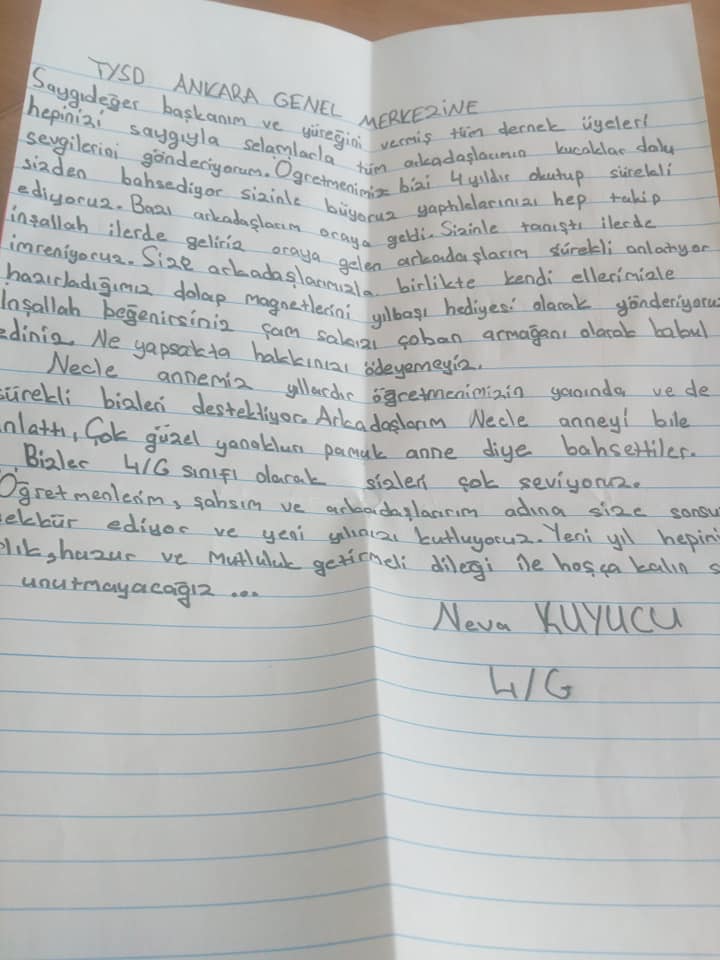 TYSD ANKARA GENEL MERKEZİNE
Saygıdeğer başkanım ve yüreğini vermiş tüm dernek üyeleri
hepinizi saygıyla selamlarla tüm arkadaşlarımın kucaklar dolu
sevgilerini gönderiyorum. Öğretmenimiz bizi 4 yıldır okutup sürekli
sizden bahsediyor sizinle büyoruz yaptıklarınızı hep takip
ediyoruz. Bazı arkadaşlarım oraya geldi. Sizinle tanıştı ilerde
inşallah ilerde geliriz oraya gelen arkadaşlarım sürekli anlatıyor
imreniyoruz. Size arkadaşlarımızla birlikte kendi ellerimizle
hazırladığımız dolap magnetlerini yılbaşı hediyesi olarak gönderiyoruz
İnşallah beğenirsiniz çam sakızı çoban armağanı olarak kabul
ediniz. Ne yapsakta hakkınızı ödeyemeyiz.
Necle annemiz yıllardır öğretmenimizin yanında ve de
sürekli bizleri destekliyor. Arkadaşlarım Necle anneyi bile
anlattı, Çok güzel yanakları pamuk anne diye bahsettiler.
Bizler 4/G sınıfı olarak sizleri çok seviyoruz.
Öğretmenlerim, şahsım ve arkadaşlarım adına size sonsu
ekkür ediyor ve yeni yılınızı kutluyoruz. Yeni yıl hepini
lık, huzur ve mutluluk getirmeli dileği ile hoşça kalın s
unutmayacağız ...
Neva KUYUCU
4/G